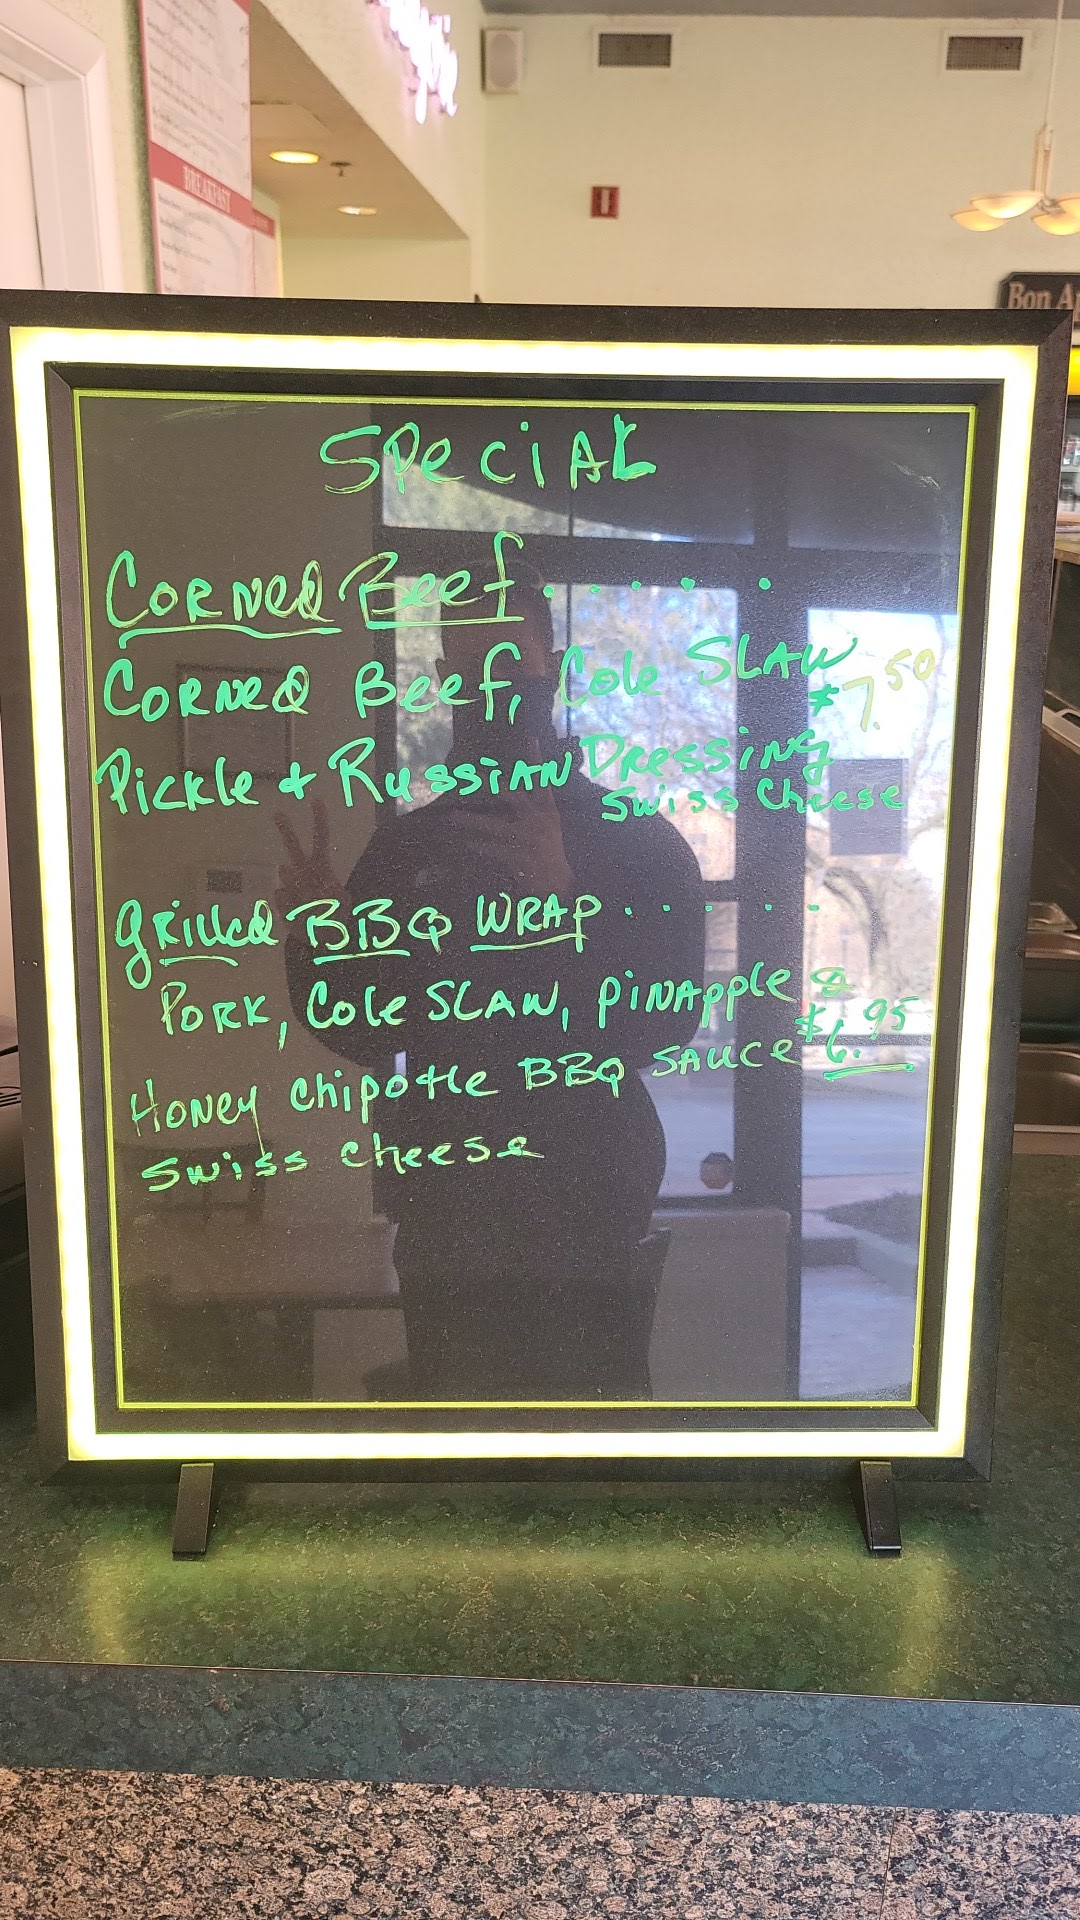 BREAKFAST
Bon A
SPeciAL
CORNeD Beef . . . . .
CORNeD Beef, Cole SLAW
$7.50
Pickle & RussiAN Dressing
Swiss Cheese
gRilled BBQ WRAP . . . . .
PORK, Cole SLAW, piNApple &
$6.95
HoNey chipotle BBQ SAuce
Swiss cheese